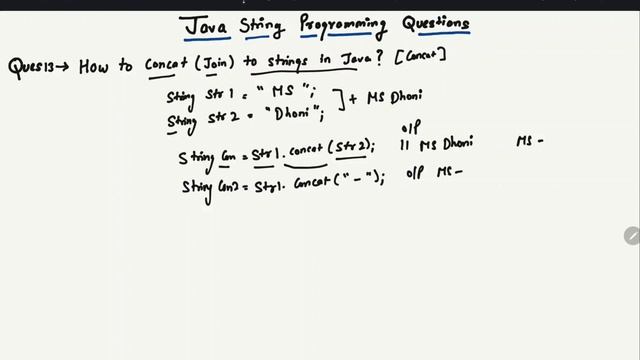 Java String Programming Questions
Ques13→ How to concat (Join) to strings in Java? [Concat]
String Str1 = "MS "; ] + MS Dhoni
String Str2 = "Dhoni";
O/P
String Con = Str1.concat(Str2); || MS Dhoni MS -
String Con2 = Str1. Concat("-"); O/P MS -